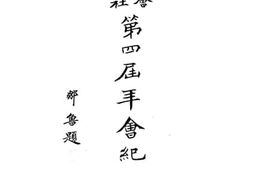 社
第四屆年會紀
鄒魯題